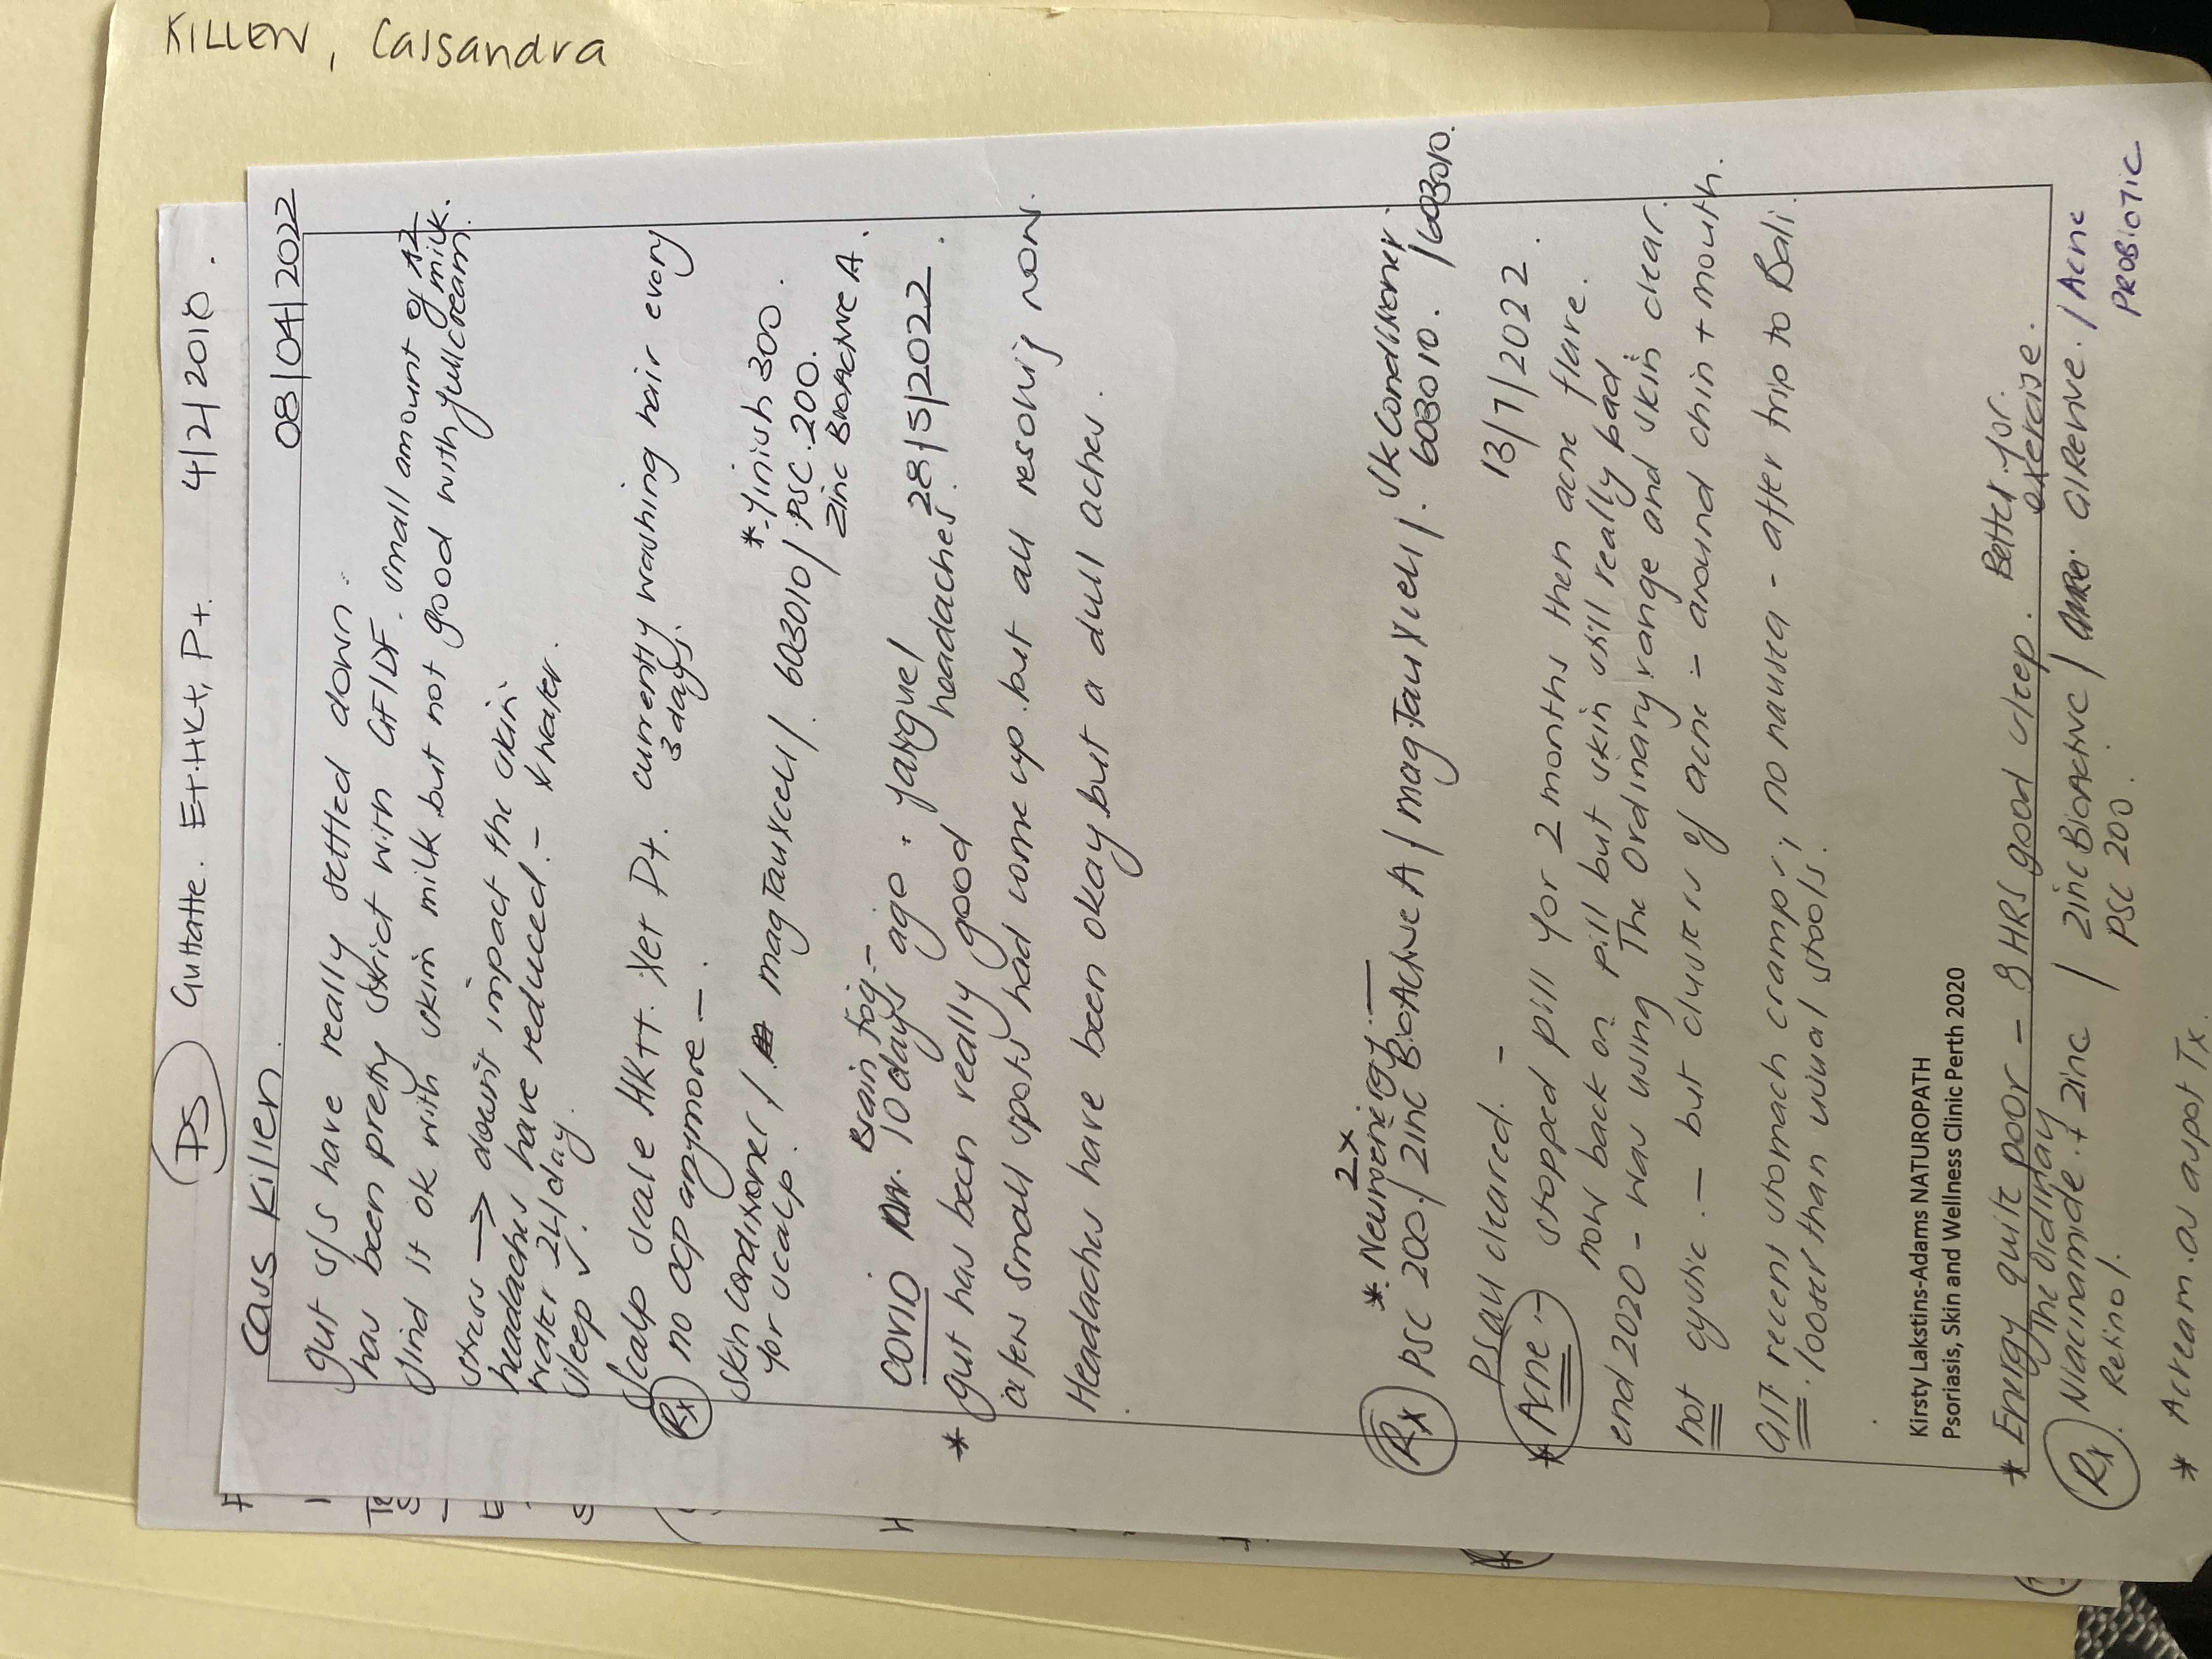 KILLEN, Cassandra
PS Guttate. E++HK+, P+. 4/2/2018.
Cass Killen. 08/04/2022
gut s/s have really settled down.
has been pretty strict with GF/DF. small amount of A2 milk.
find it ok with skim milk but not good with full cream.
stress → doesn't impact the skin
headaches have reduced. -
water 2L/day.
sleep ✓.
scalp scale HK++. Xer P+. currently washing hair every 3 days.
Rx no OCP anymore -
skin conditioner / magTauXcell /. 603010 / PSC. 200.
for scalp.
* finish 300.
Zinc BioActive A.
Brain fog. -
COVID 10 days ago. fatigue / headaches. 28/5/2022
* gut has been really good
a few small spots had come up but all resolving now.
Headaches have been okay but a dull aches.
* 2x Neumeric
Rx PSC 200. / Zinc BioActive A / magTauXcell /. Sk Conditioner / 603010. / 603010.
PSau cleared. - 13/7/2022.
* Acne :- stopped pill for 2 months then acne flare.
now back on pill but skin still really bad
end 2020 - was using The Ordinary range and skin clear.
not cystic. - but clusters of acne - around chin + mouth.
GIT recent stomach cramps, no nausea - after trip to Bali.
looser than usual stools.
Kirsty Lakstins-Adams NATUROPATH
Psoriasis, Skin and Wellness Clinic Perth 2020
* Energy quite poor - 8 HRS good sleep. Better for. exercise.
Rx The Ordinary
Niacinamide + Zinc / Zinc BioActive / / Acne PROBIOTIC
Retinol. PSC 200.
* A cream. as a spot Tx.